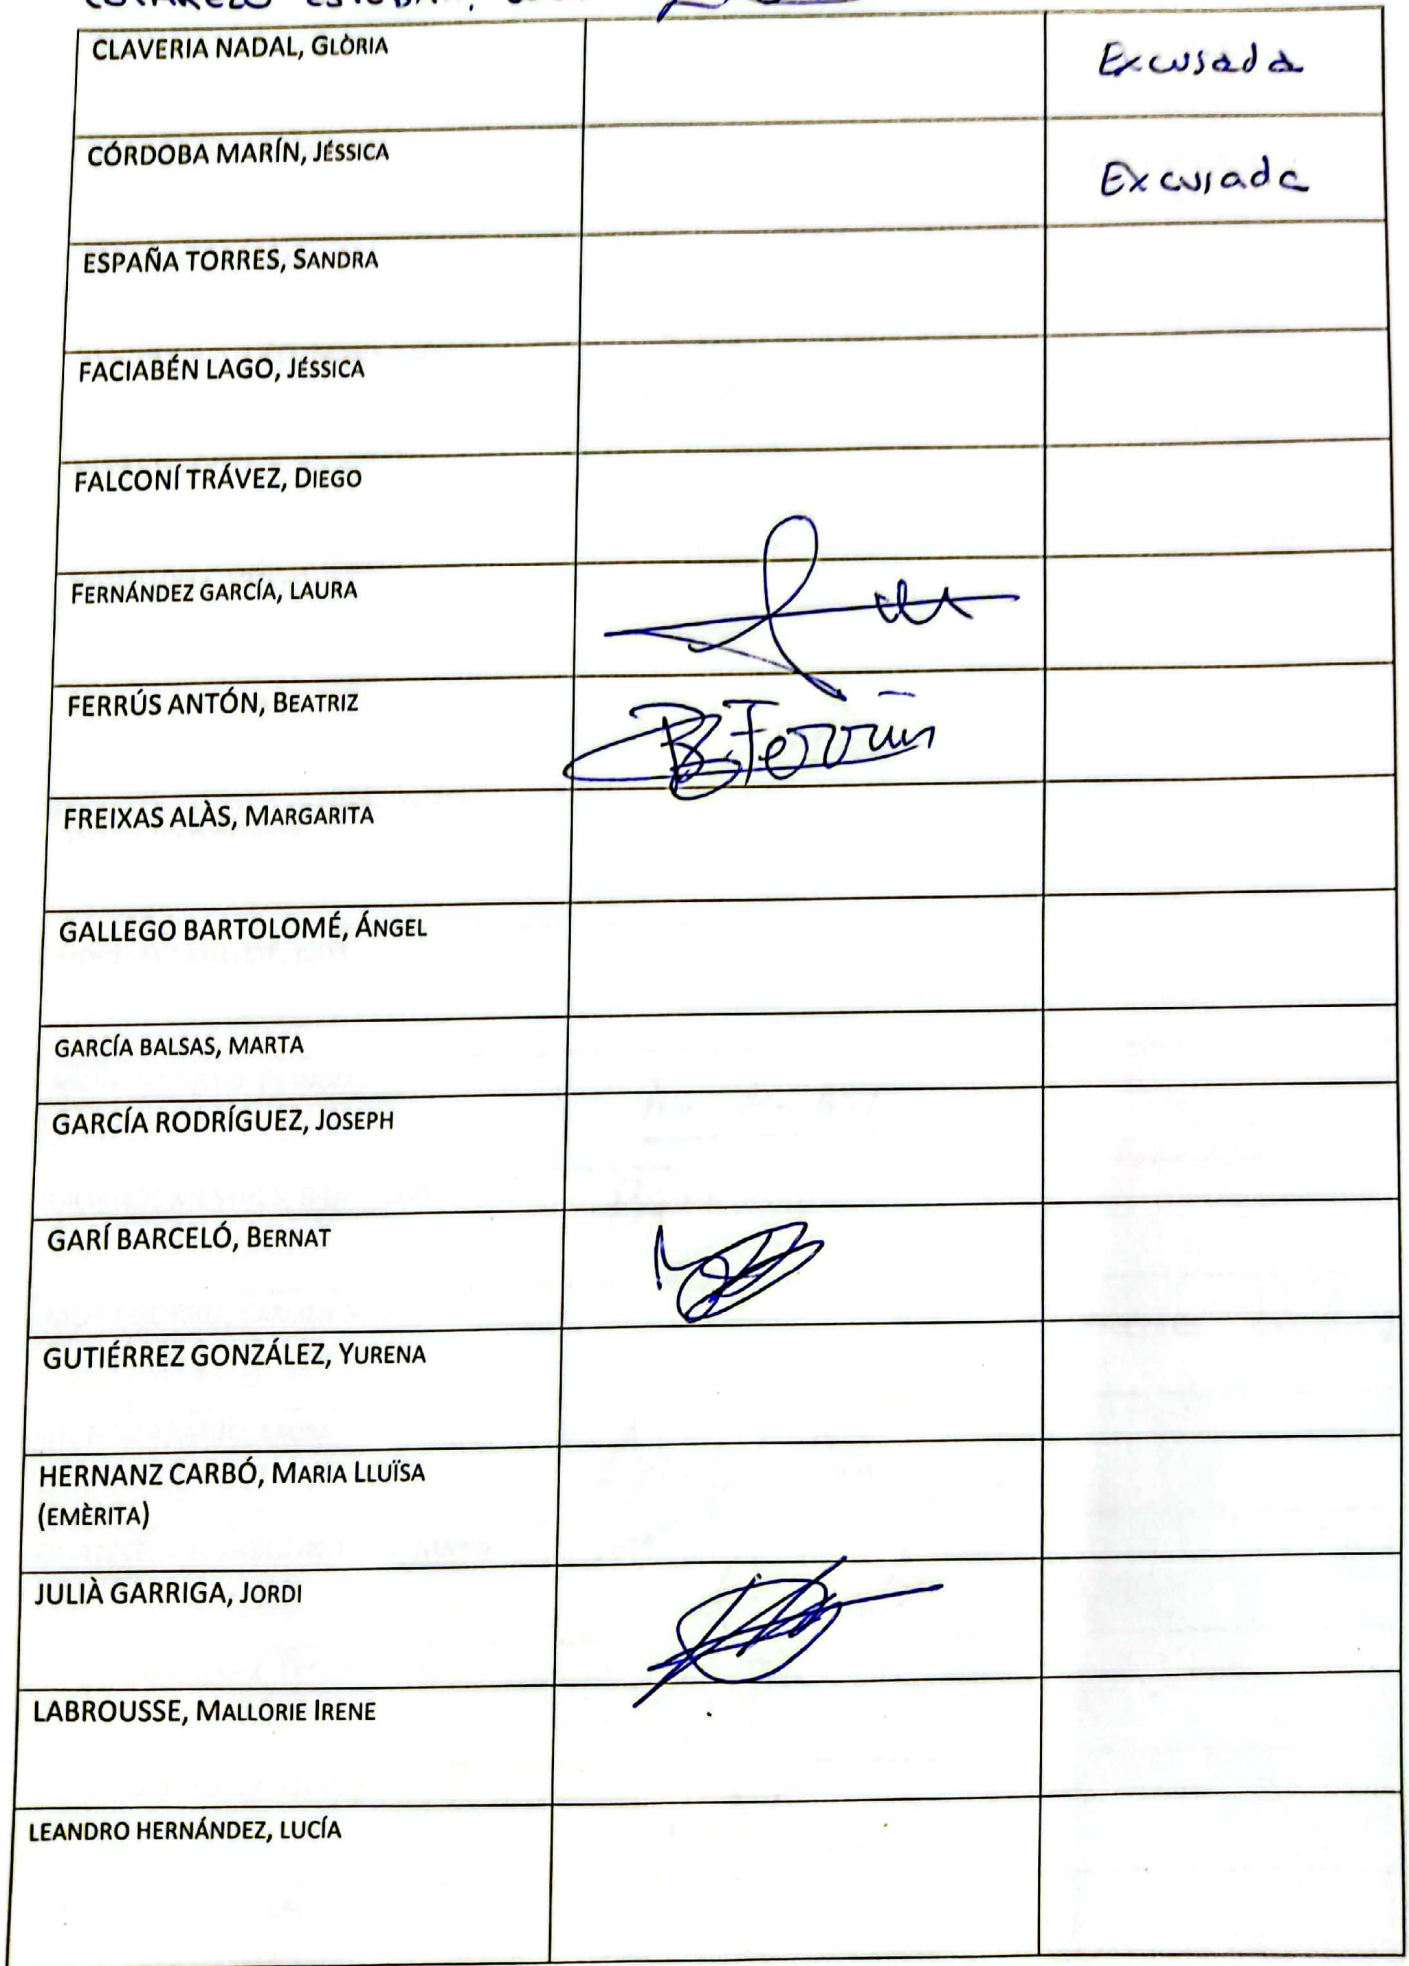 CLAVERIA NADAL, GLÒRIA Excusada
CÓRDOBA MARÍN, JÉSSICA Excusada
ESPAÑA TORRES, SANDRA
FACIABÉN LAGO, JÉSSICA
FALCONÍ TRÁVEZ, DIEGO
FERNÁNDEZ GARCÍA, LAURA
FERRÚS ANTÓN, BEATRIZ B. Ferrús
FREIXAS ALÀS, MARGARITA
GALLEGO BARTOLOMÉ, ÁNGEL
GARCÍA BALSAS, MARTA
GARCÍA RODRÍGUEZ, JOSEPH
GARÍ BARCELÓ, BERNAT
GUTIÉRREZ GONZÁLEZ, YURENA
HERNANZ CARBÓ, MARIA LLUÏSA
(EMÈRITA)
JULIÀ GARRIGA, JORDI
LABROUSSE, MALLORIE IRENE
LEANDRO HERNÁNDEZ, LUCÍA